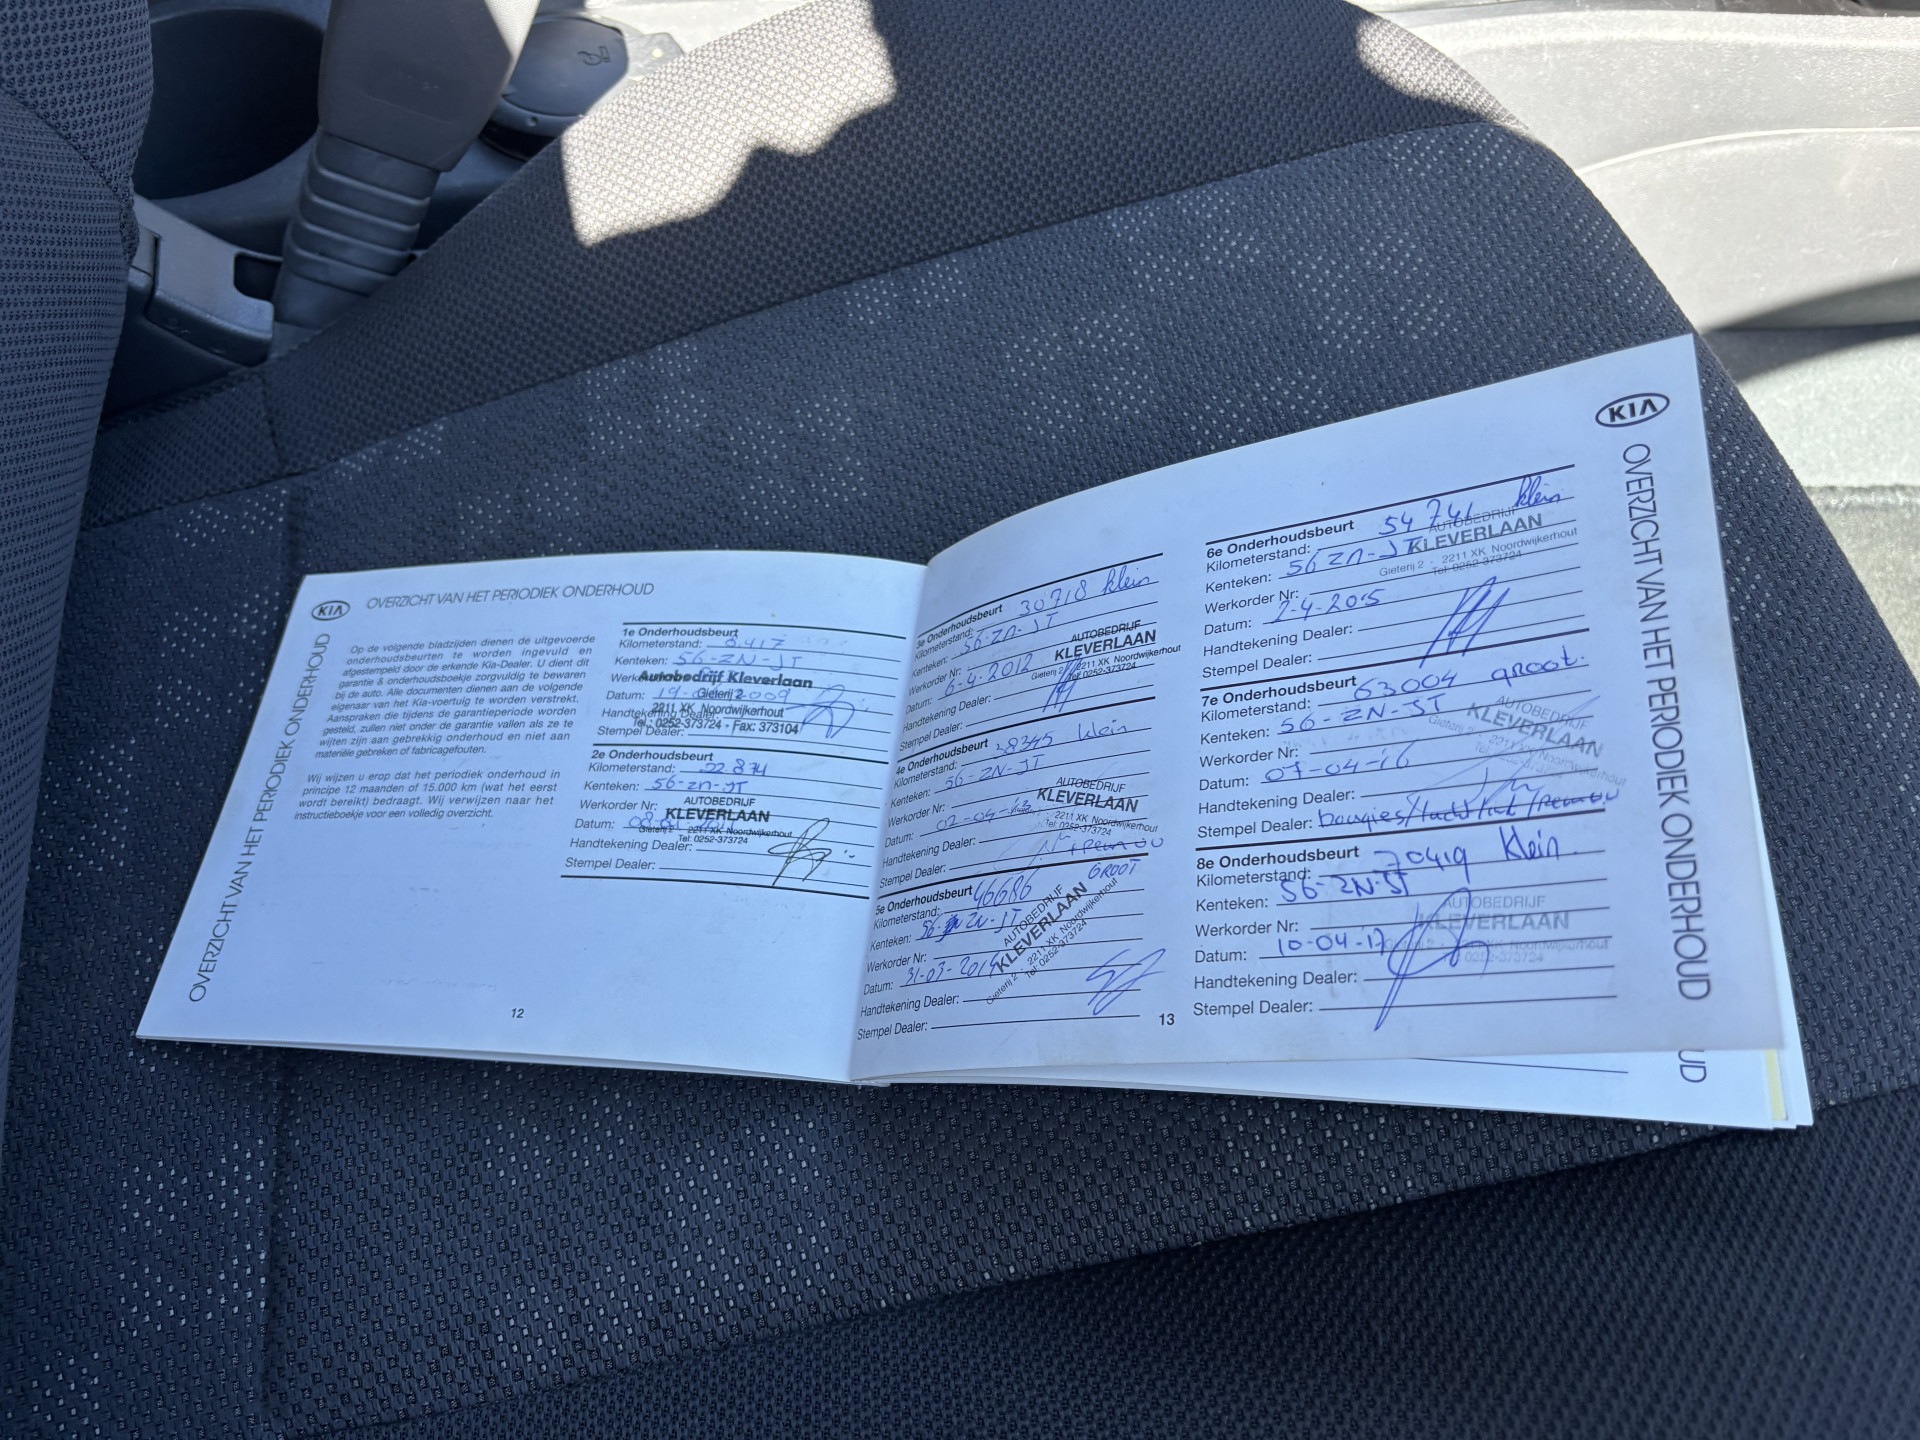 KIA
OVERZICHT VAN HET PERIODIEK ONDERHOUD
OVERZICHT VAN HET PERIODIEK ONDERHOUD
Op de volgende bladzijden dienen de uitgevoerde
onderhoudsbeurten te worden ingevuld en
afgestempeld door de erkende Kia-Dealer. U dient dit
garantie & onderhoudsboekje zorgvuldig te bewaren
bij de auto. Alle documenten dienen aan de volgende
eigenaar van het Kia-voertuig te worden verstrekt.
Aanspraken die tijdens de garantieperiode worden
gesteld, zullen niet onder de garantie vallen als ze te
wijten zijn aan gebrekkig onderhoud en niet aan
materiële gebreken of fabricagefouten.
Wij wijzen u erop dat het periodiek onderhoud in
principe 12 maanden of 15.000 km (wat het eerst
wordt bereikt) bedraagt. Wij verwijzen naar het
instructieboekje voor een volledig overzicht.
1e Onderhoudsbeurt
Kilometerstand: 8417
Kenteken: 56-ZN-JT
Autobedrijf Kleverlaan
Datum: 2009
Gieterij 2
2211 XK Noordwijkerhout
Tel.: 0252-373724 - Fax: 373104
Stempel Dealer:
2e Onderhoudsbeurt
Kilometerstand: 22874
Kenteken: 56-ZN-JT
Werkorder Nr:
AUTOBEDRIJF
KLEVERLAAN
Datum:
Gieterij 2 2211 XK Noordwijkerhout
Tel: 0252-373724
Handtekening Dealer:
Stempel Dealer:
12
3e Onderhoudsbeurt
Kilometerstand: 30718 klein
Kenteken: 56-ZN-JT
Werkorder Nr:
AUTOBEDRIJF
KLEVERLAAN
Gieterij 2 2211 XK Noordwijkerhout
Tel: 0252-373724
Datum: 6-4-2012
Handtekening Dealer:
Stempel Dealer:
4e Onderhoudsbeurt
Kilometerstand: 38345 klein
Kenteken: 56-ZN-JT
Werkorder Nr:
AUTOBEDRIJF
KLEVERLAAN
2211 XK Noordwijkerhout
Tel: 0252-373724
Datum: 02-04-13
Handtekening Dealer:
Stempel Dealer:
5e Onderhoudsbeurt GROOT
Kilometerstand: 46686
Kenteken: 56-ZN-JT
Werkorder Nr:
AUTOBEDRIJF
KLEVERLAAN
Gieterij 2 2211 XK Noordwijkerhout
Tel: 0252-373724
Datum: 31-03-2014
Handtekening Dealer:
Stempel Dealer:
13
6e Onderhoudsbeurt
Kilometerstand: 54741 klein
Kenteken: 56-ZN-JT
AUTOBEDRIJF
KLEVERLAAN
Gieterij 2 - 2211 XK Noordwijkerhout
Tel: 0252-373724
Werkorder Nr:
Datum: 2-4-2015
Handtekening Dealer:
Stempel Dealer:
7e Onderhoudsbeurt
Kilometerstand: 63004 groot.
Kenteken: 56-ZN-JT
AUTOBEDRIJF
KLEVERLAAN
Gieterij 2 2211 XK Noordwijkerhout
Werkorder Nr:
Datum: 07-04-16
Handtekening Dealer:
Stempel Dealer: bougies/
8e Onderhoudsbeurt
Kilometerstand: 70419 Klein
Kenteken: 56-ZN-JT
Werkorder Nr:
AUTOBEDRIJF
KLEVERLAAN
Gieterij 2 - 2211 XK Noordwijkerhout
Tel: 0252-373724
Datum: 10-04-17
Handtekening Dealer:
Stempel Dealer:
KIA
OVERZICHT VAN HET PERIODIEK ONDERHOUD
UD